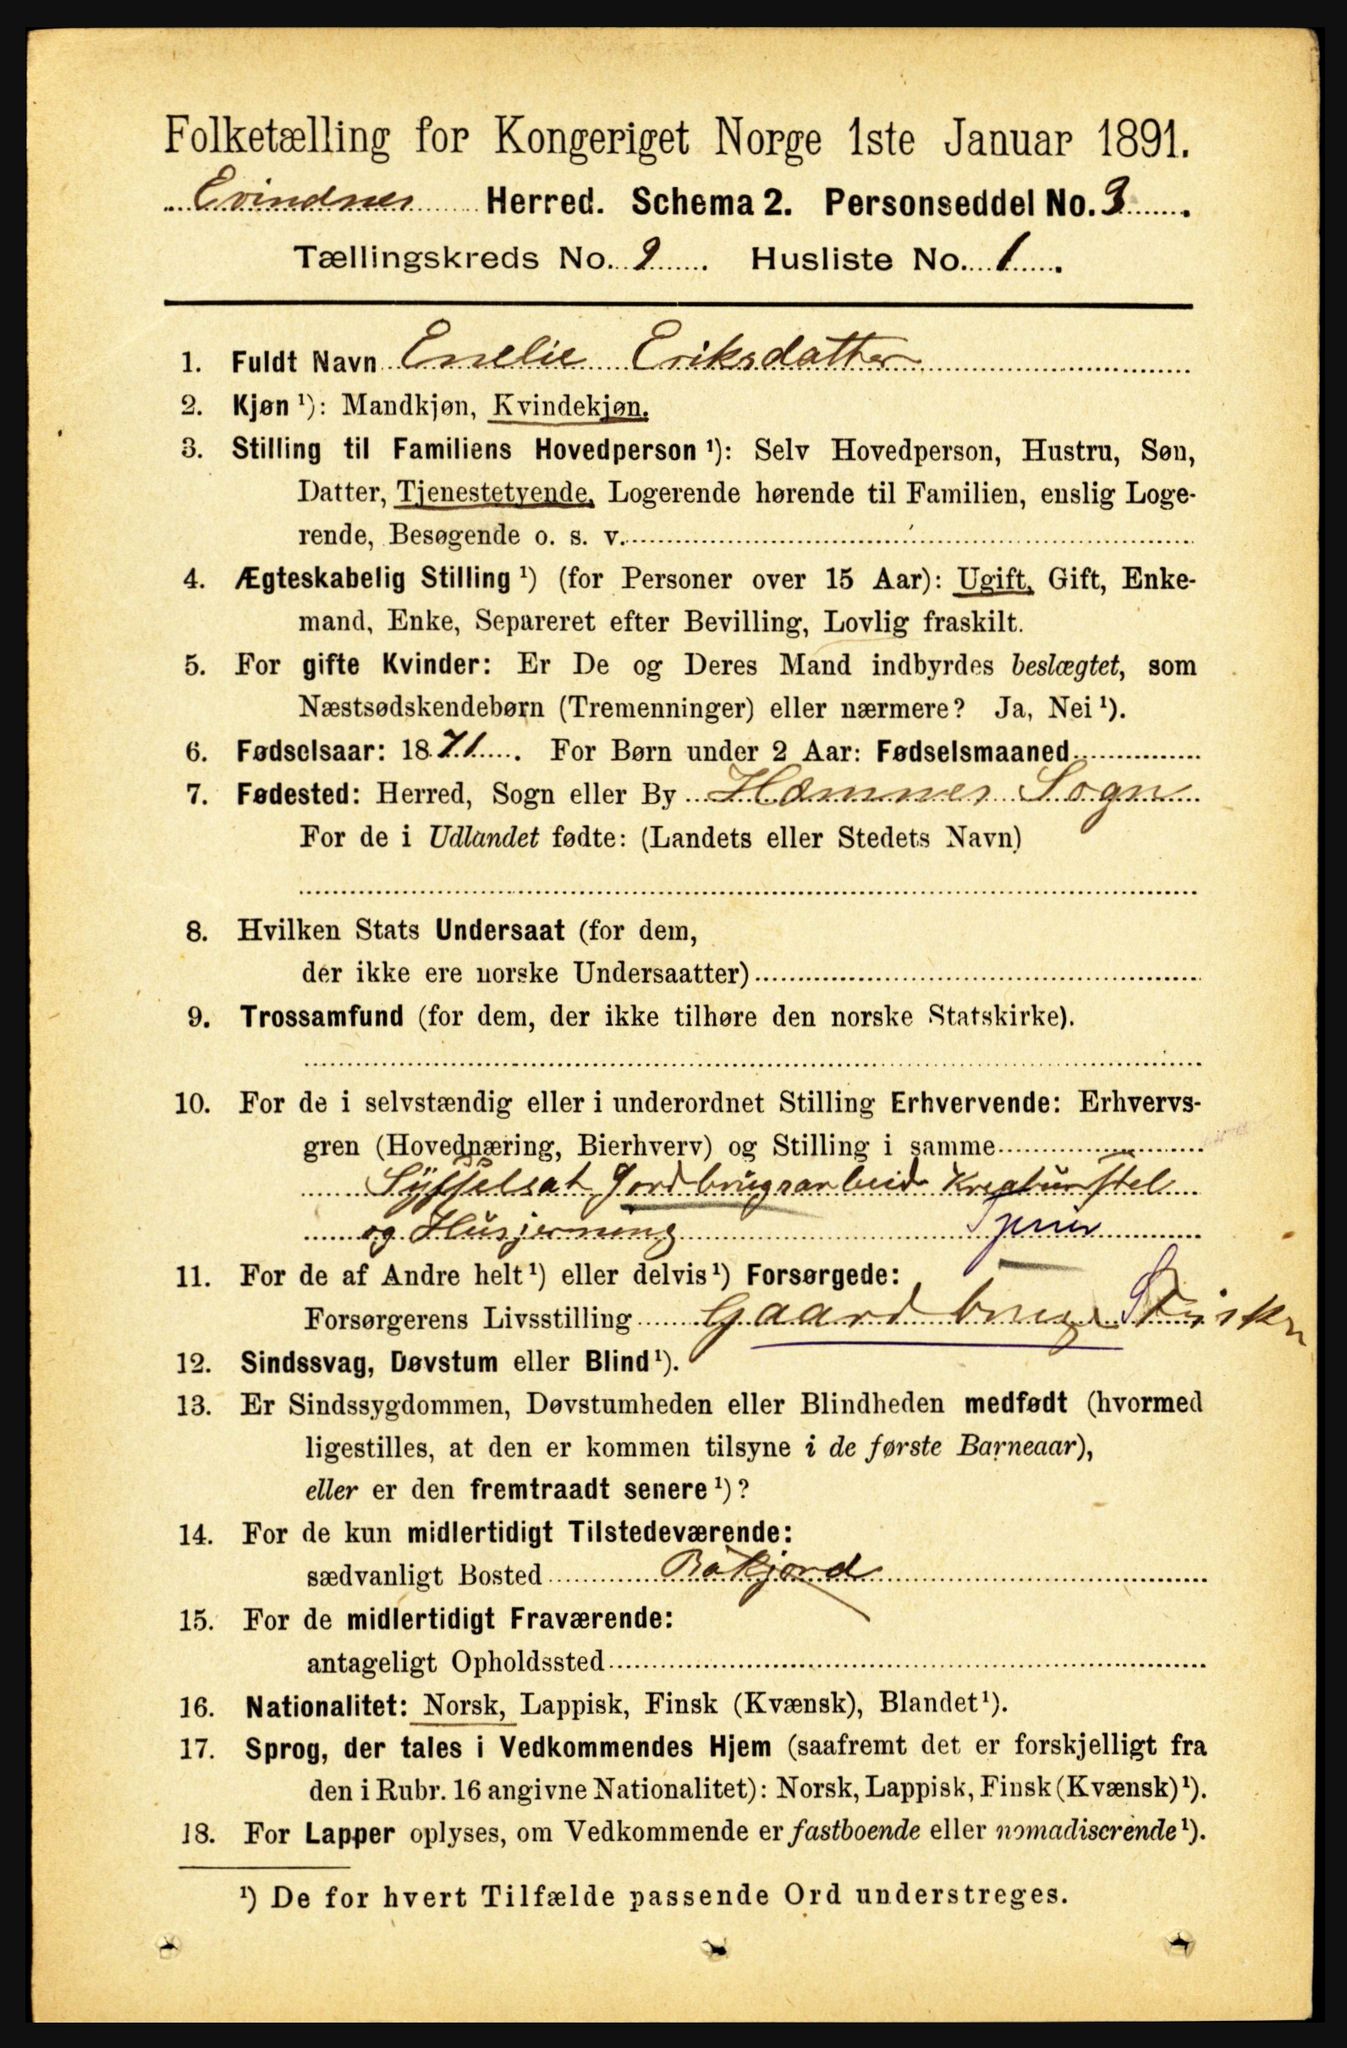 Folketælling for Kongeriget Norge 1ste Januar 1891.
Evindnes Herred. Schema 2. Personseddel No. 3.
Tællingskreds No. 9. Husliste No. 1.
1. Fuldt Navn Emelie Eriksdatter
2. Kjøn ¹): Mandkjøn, Kvindekjøn.
3. Stilling til Familiens Hovedperson ¹): Selv Hovedperson, Hustru, Søn,
Datter, Tjenestetyende, Logerende hørende til Familien, enslig Loge-
rende, Besøgende o. s. v.
4. Ægteskabelig Stilling ¹) (for Personer over 15 Aar): Ugift, Gift, Enke-
mand, Enke, Separeret efter Bevilling, Lovlig fraskilt.
5. For gifte Kvinder: Er De og Deres Mand indbyrdes beslægtet, som
Næstsødskendebørn (Tremenninger) eller nærmere? Ja, Nei ¹).
6. Fødselsaar: 1871. For Børn under 2 Aar: Fødselsmaaned
7. Fødested: Herred, Sogn eller By Hæmnes Sogn
For de i Udlandet fødte: (Landets eller Stedets Navn)
8. Hvilken Stats Undersaat (for dem,
der ikke ere norske Undersaatter)
9. Trossamfund (for dem, der ikke tilhøre den norske Statskirke).
10. For de i selvstændig eller i underordnet Stilling Erhvervende: Erhvervs-
gren (Hovednæring, Bierhverv) og Stilling i samme
Sysselsat Jordbrugsarbeid Kreaturstel
og Husjerning Tjener
11. For de af Andre helt ¹) eller delvis ¹) Forsørgede:
Forsørgerens Livsstilling Gaardbruger
12. Sindssvag, Døvstum eller Blind ¹).
13. Er Sindssygdommen, Døvstumheden eller Blindheden medfødt (hvormed
ligestilles, at den er kommen tilsyne i de første Barneaar),
eller er den fremtraadt senere ¹)?
14. For de kun midlertidigt Tilstedeværende:
sædvanligt Bosted Bøkjord
15. For de midlertidigt Fraværende:
antageligt Opholdssted
16. Nationalitet: Norsk, Lappisk, Finsk (Kvænsk), Blandet ¹).
17. Sprog, der tales i Vedkommendes Hjem (saafremt det er forskjelligt fra
den i Rubr. 16 angivne Nationalitet): Norsk, Lappisk, Finsk (Kvænsk) ¹).
18. For Lapper oplyses, om Vedkommende er fastboende eller nomadiserende ¹).
¹) De for hvert Tilfælde passende Ord understreges.